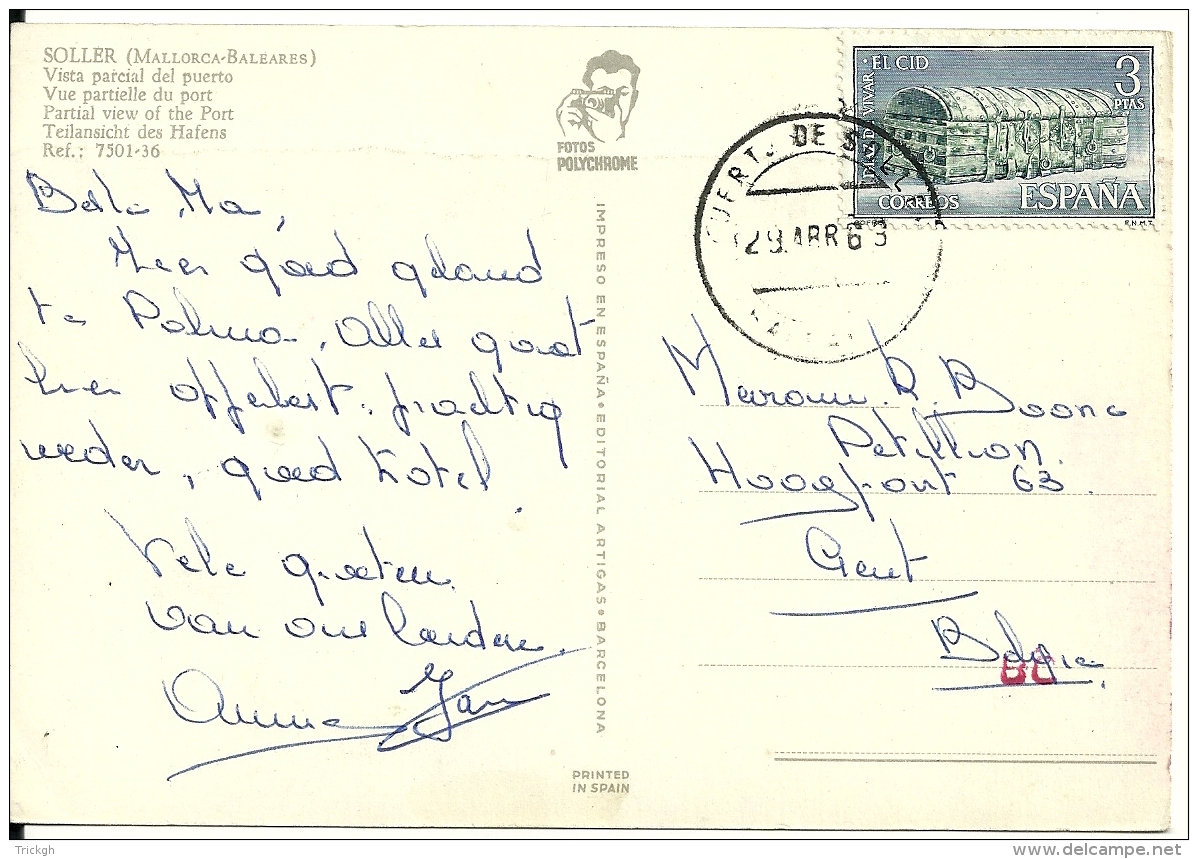 SOLLER (MALLORCA-BALEARES)
Vista parcial del puerto
Vue partielle du port
Partial view of the Port
Teilansicht des Hafens
Ref.: 7501-36
FOTOS
POLYCHROME
EL CID
3
PTAS
CORREOS
ESPAÑA
F.N.M.T.
PUERTO DE
29 ABR 63
Beste Ma,
Zeer goed geland
te Palma, alles gaat
hier opperbest, prachtig
weder, goed hotel
Vele groeten
van ons beiden.
Anna Jan
IMPRESO EN ESPAÑA • EDITORIAL ARTIGAS • BARCELONA
PRINTED
IN SPAIN
Mevrouw R. Boone
Petillion.
Hoogpoort 63.
Gent
Belgie
Trickgh
delcampe.net